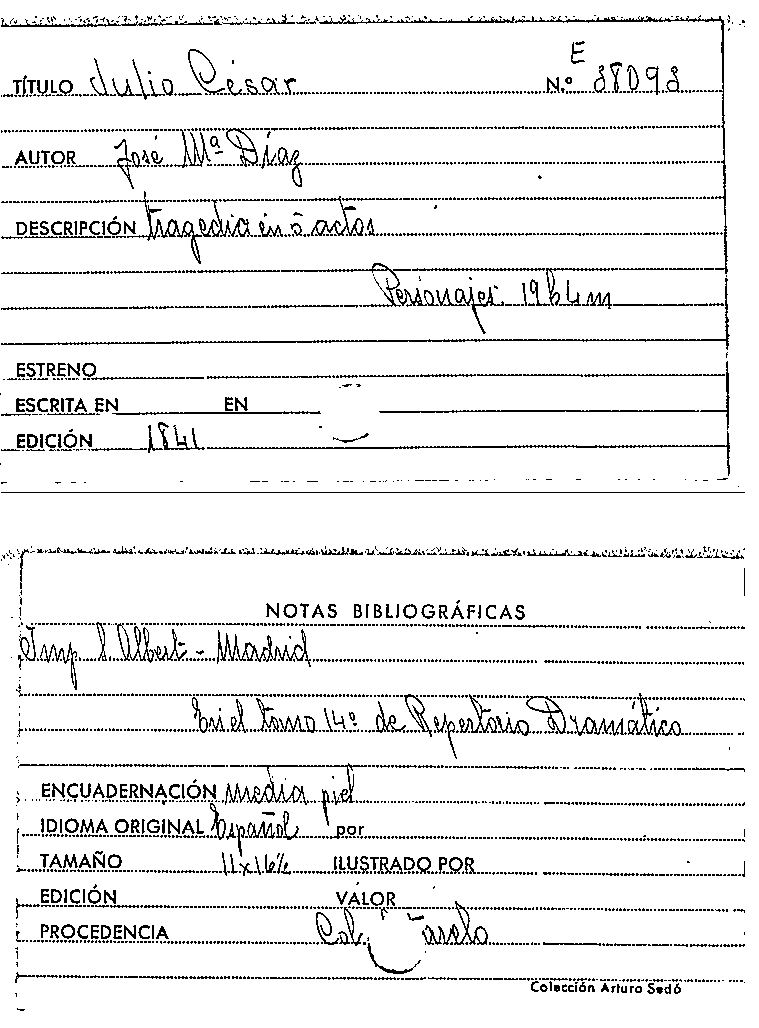 E
TÍTULO Julio César N.º 38098
AUTOR José Mª Díaz
DESCRIPCIÓN tragedia en 5 actos
Personajes: 19 h 4 m
ESTRENO
ESCRITA EN EN
EDICIÓN 1841
NOTAS BIBLIOGRÁFICAS
Imp. S. Albert - Madrid
En el tomo 14º de Repertorio Dramático
ENCUADERNACIÓN media piel
IDIOMA ORIGINAL Español por
TAMAÑO 11x16½ ILUSTRADO POR
EDICIÓN VALOR
PROCEDENCIA Col.
Colección Arturo Sedó